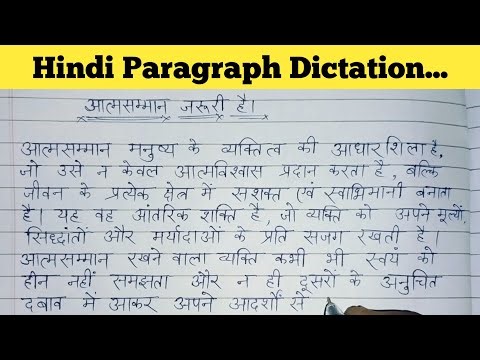 Hindi Paragraph Dictation...
आत्मसम्मान जरूरी है।
आत्मसम्मान मनुष्य के व्यक्तित्व की आधारशिला है,
जो उसे न केवल आत्मविश्वास प्रदान करता है, बल्कि
जीवन के प्रत्येक क्षेत्र में सशक्त एवं स्वाभिमानी बनाता
है। यह वह आंतरिक शक्ति है, जो व्यक्ति को अपने मूल्यों,
सिद्धांतों और मर्यादाओं के प्रति सजग रखती है।
आत्मसम्मान रखने वाला व्यक्ति कभी भी स्वयं को
हीन नहीं समझता और न ही दूसरों के अनुचित
दबाव में आकर अपने आदर्शों से